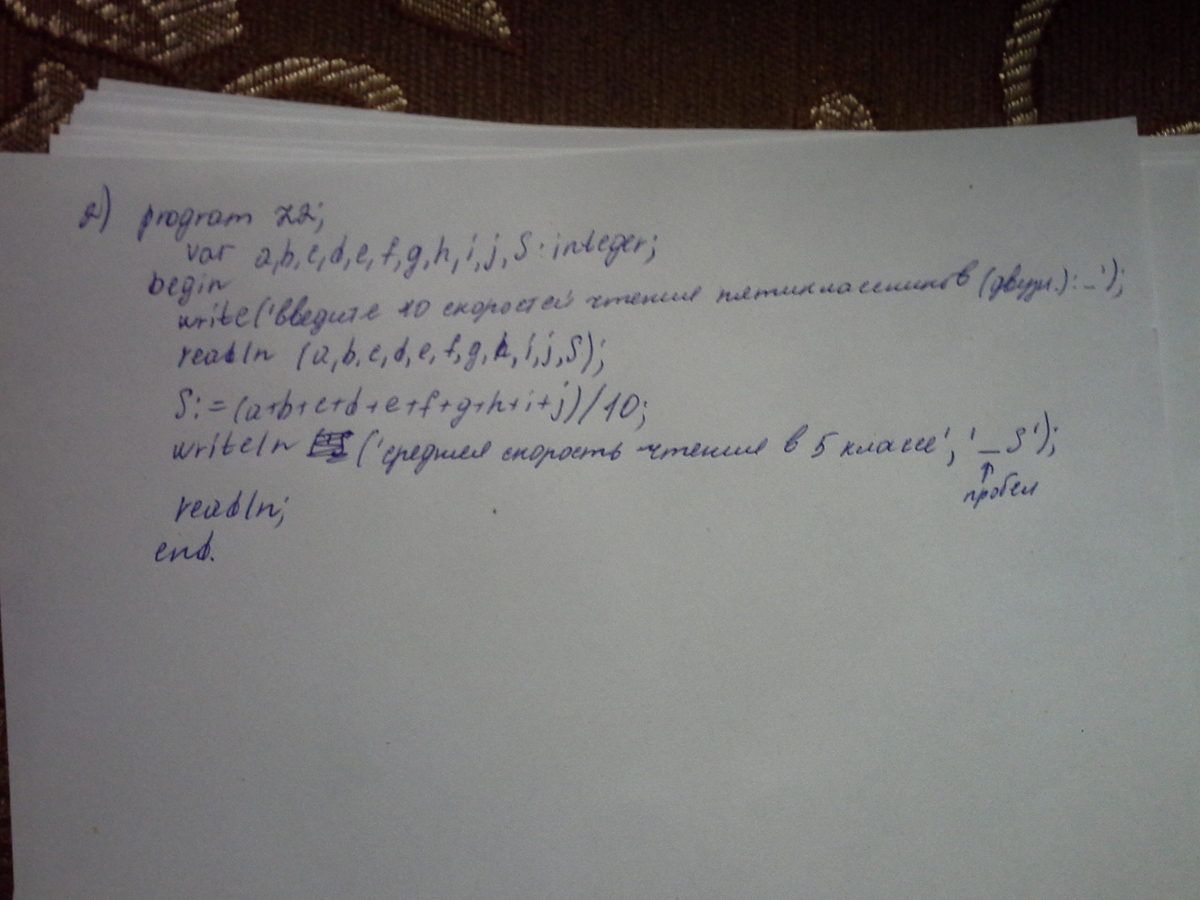 2) program z2;
var a,b,c,d,e,f,g,h,i,j,S:integer;
begin
write('Введите 10 скоростей чтения пятиклассников (двузн.):_');
readln (a,b,c,d,e,f,g,h,i,j,S);
S:=(a+b+c+d+e+f+g+h+i+j)/10;
writeln ('средняя скорость чтения в 5 классе', '_S');
↑
пробел
readln;
end.